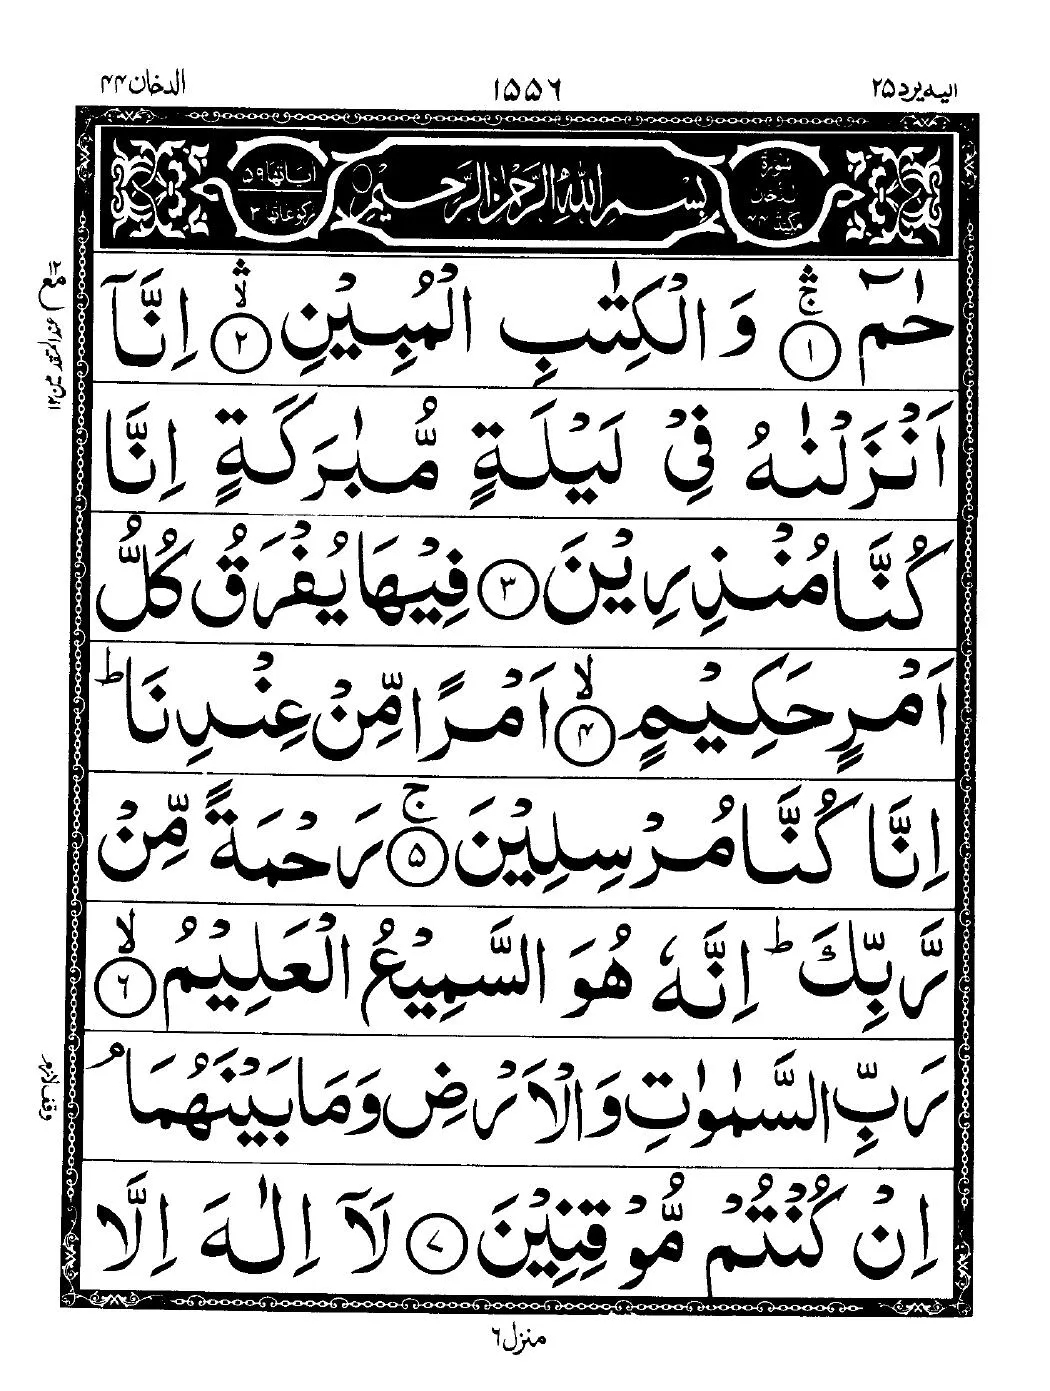 الیه یرد ۲۵
۱۵۵۶
الدخان ۴۴
سُوْرَةُ الدُّخَان مَكِّيَّة ۴۴
بِسْمِ اللّٰهِ الرَّحْمٰنِ الرَّحِيْمِ
اٰیاتها ۵۹
رکوعاتها ۳
حٰمٓ ۚۛ ۱ وَالْكِتٰبِ الْمُبِيْنِ ۙۛ ۲ اِنَّاۤ
اَنْزَلْنٰهُ فِيْ لَيْلَةٍ مُّبٰرَكَةٍ اِنَّا
كُنَّا مُنْذِرِيْنَ ۳ فِيْهَا يُفْرَقُ كُلُّ
اَمْرٍ حَكِيْمٍ ۙ ۴ اَمْرًا مِّنْ عِنْدِنَا ؕ
اِنَّا كُنَّا مُرْسِلِيْنَ ۚ ۵ رَحْمَةً مِّنْ
رَّبِّكَ ؕ اِنَّهٗ هُوَ السَّمِيْعُ الْعَلِيْمُ ۙ ۶
رَبِّ السَّمٰوٰتِ وَالْاَرْضِ وَمَا بَيْنَهُمَا ۘ
اِنْ كُنْتُمْ مُّوْقِنِيْنَ ۷ لَاۤ اِلٰهَ اِلَّا
مع ۱۲ عند المتقدمین ۱۲
وقف لازم
منزل ۶